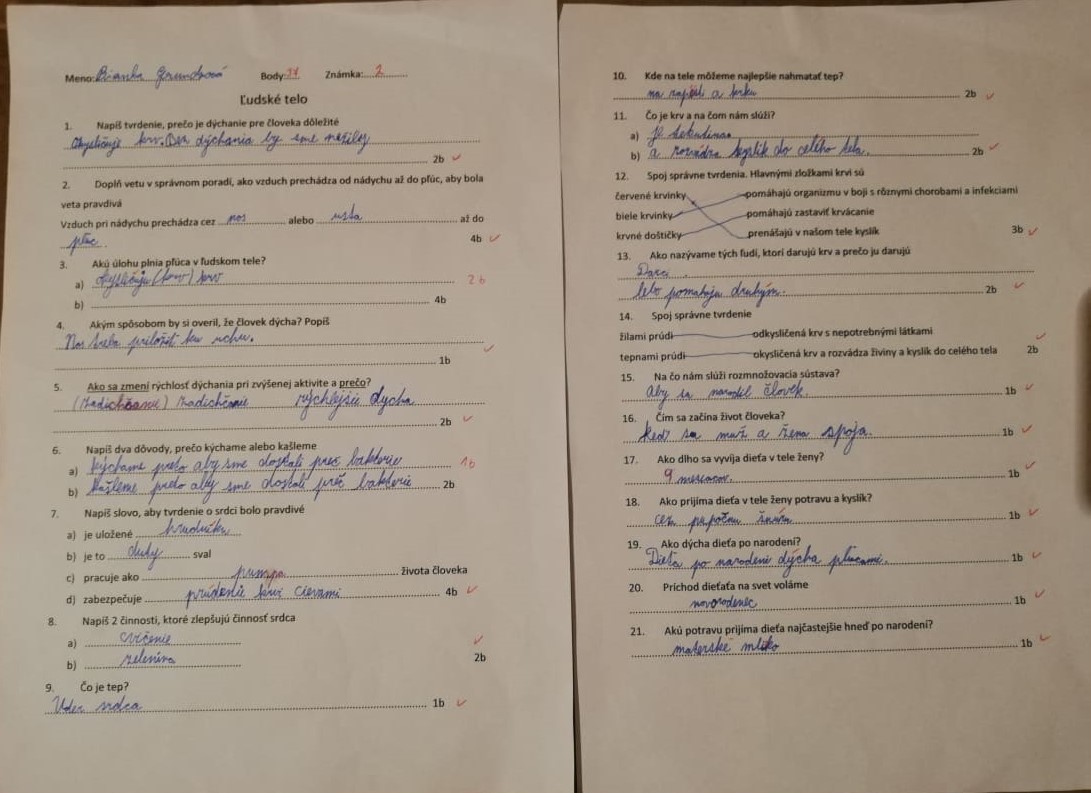 Meno: Bianka Body: 34 Známka: 2
Ľudské telo
1. Napíš tvrdenie, prečo je dýchanie pre človeka dôležité
Okysličuje krv. Bez dýchania by sme nežiloy
2b
2. Doplň vetu v správnom poradí, ako vzduch prechádza od nádychu až do pľúc, aby bola
veta pravdivá
Vzduch pri nádychu prechádza cez nos alebo ústa až do
pľúc. 4b
3. Akú úlohu plnia pľúca v ľudskom tele?
a) okysličujú (krv) krv 2b
b) 4b
4. Akým spôsobom by si overil, že človek dýcha? Popíš
Nos treba priložiť ku uchu.
1b
5. Ako sa zmení rýchlosť dýchania pri zvýšenej aktivite a prečo?
(zadichčanie) zadichčanie rýchlejšie dycha
2b
6. Napíš dva dôvody, prečo kýchame alebo kašleme
a) kýchame preto aby sme dostali preč bakterie 1b
b) kašleme preto aby sme dostali preč bakterie 2b
7. Napíš slovo, aby tvrdenie o srdci bolo pravdivé
a) je uložené hrudníku
b) je to dutý sval
c) pracuje ako pumpa života človeka
d) zabezpečuje prúdenie krvi cievami 4b
8. Napíš 2 činnosti, ktoré zlepšujú činnosť srdca
a) cvičenie
b) zelenina 2b
9. Čo je tep?
Úder srdca 1b
10. Kde na tele môžeme najlepšie nahmatať tep?
na zapästí a krku 2b
11. Čo je krv a na čom nám slúži?
a) je tekutina.
b) a rozvádza kyslík do celého tela. 2b
12. Spoj správne tvrdenia. Hlavnými zložkami krvi sú
červené krvinky pomáhajú organizmu v boji s rôznymi chorobami a infekciami
biele krvinky pomáhajú zastaviť krvácanie
krvné doštičky prenášajú v našom tele kyslík 3b
13. Ako nazývame tých ľudí, ktorí darujú krv a prečo ju darujú
Darci.
lebo pomahaju druhým. 2b
14. Spoj správne tvrdenie
žilami prúdi odkysličená krv s nepotrebnými látkami
tepnami prúdi okysličená krv a rozvádza živiny a kyslík do celého tela 2b
15. Na čo nám slúži rozmnožovacia sústava?
Aby sa narodil človek. 1b
16. Čím sa začína život človeka?
keď sa muž a žena spoja. 1b
17. Ako dlho sa vyvíja dieťa v tele ženy?
9 mesiacov. 1b
18. Ako prijíma dieťa v tele ženy potravu a kyslík?
cez pupočnu šnúru 1b
19. Ako dýcha dieťa po narodení?
Dieťa po narodení dýcha pľúcami. 1b
20. Príchod dieťaťa na svet voláme
novorodenec 1b
21. Akú potravu prijíma dieťa najčastejšie hneď po narodení?
materské mlieko 1b